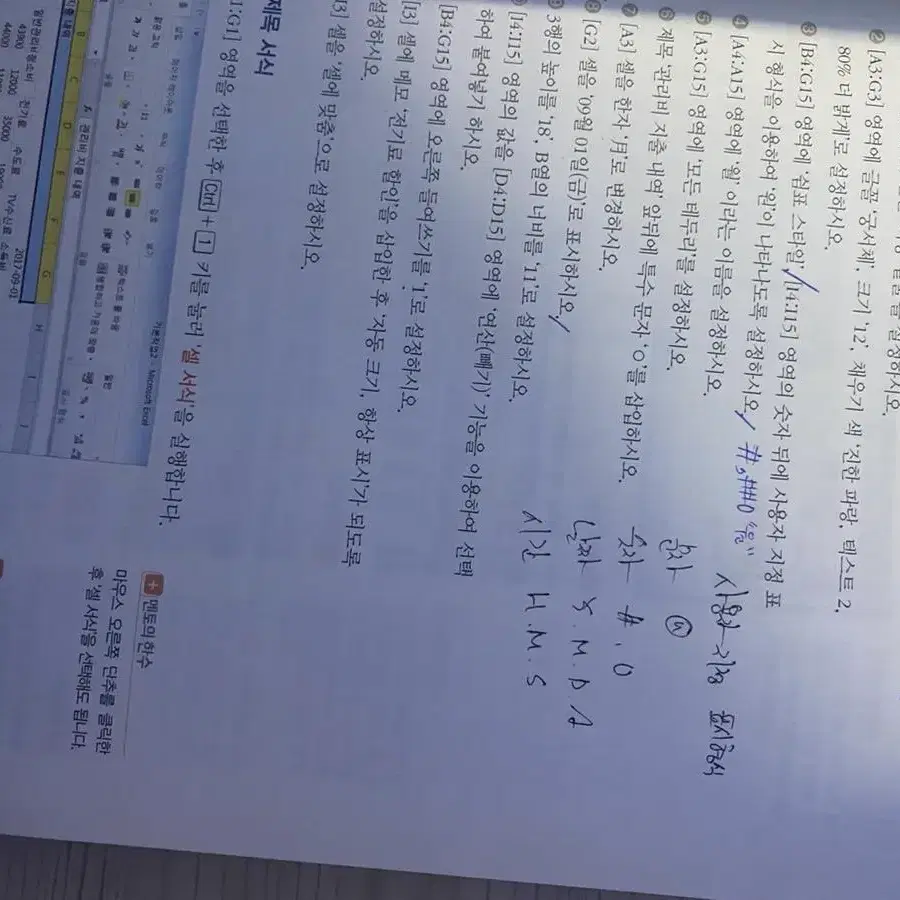 설정하시오.
② [A3:G3] 영역에 글꼴 '궁서체', 크기 '12', 채우기 색 '진한 파랑, 텍스트 2,
80% 더 밝게'로 설정하시오.
③ [B4:G15] 영역에 '쉼표 스타일', [I4:I15] 영역의 숫자 뒤에 사용자 지정 표
시 형식을 이용하여 '원'이 나타나도록 설정하시오. #,##0 "원"
④ [A4:A15] 영역에 '월' 이라는 이름을 설정하시오.
⑤ [A3:G15] 영역에 '모든 테두리'를 설정하시오.
⑥ 제목 '관리비 지출 내역' 앞뒤에 특수 문자 '○'를 삽입하시오.
⑦ [A3] 셀을 한자 '月'로 변경하시오.
⑧ [G2] 셀을 '09월 01일(금)'로 표시하시오.
3행의 높이를 '18', B열의 너비를 '11'로 설정하시오.
[I4:I15] 영역의 값을 [D4:D15] 영역에 '연산(빼기)' 기능을 이용하여 선택
하여 붙여넣기 하시오.
[B4:G15] 영역에 오른쪽 들여쓰기를 '1'로 설정하시오.
[I3] 셀에 메모 '전기료 할인'을 삽입한 후 '자동 크기', 항상 표시'가 되도록
설정하시오.
[I3] 셀을 '셀에 맞춤'으로 설정하시오.
사용자 지정 표시형식
문자 @
숫자 #. 0
날짜 Y. M. D A
시간 H. M. S
제목 서식
1:G1] 영역을 선택한 후 Ctrl + 1 키를 눌러 '셀 서식'을 실행합니다.
기본작업2 - Microsoft Excel
관리비 지출 내역
2017-09-01
일반관리비 청소비 전기료 수도료 TV수신료 소독비
43900 12000 35000
44000
+ 멘토의 한수
마우스 오른쪽 단추를 클릭한
후 '셀 서식'을 선택해도 됩니다.